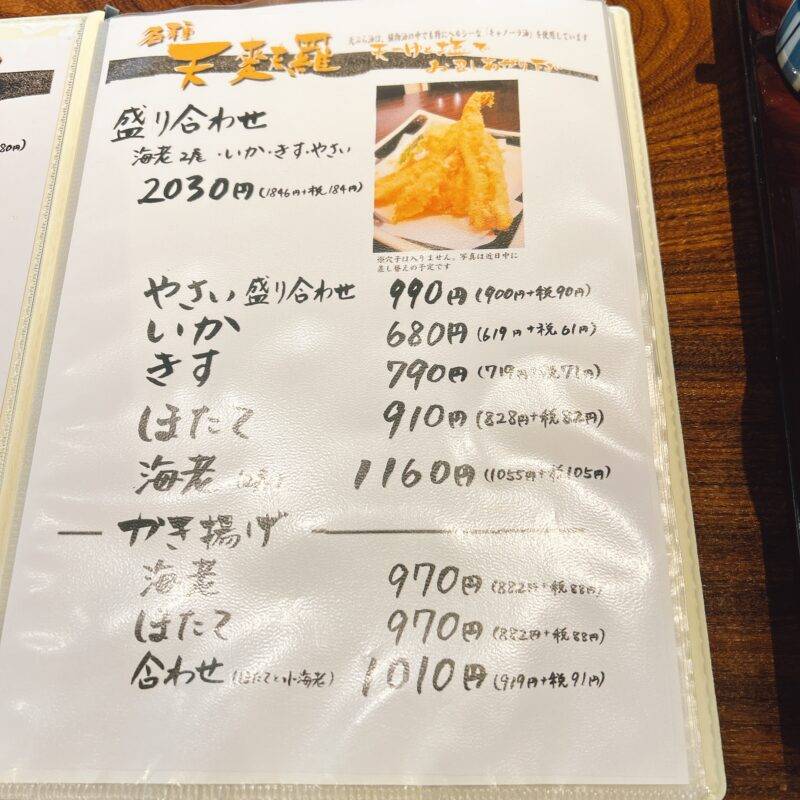 各種
天麩羅
天ぷら油は、植物油の中でも特にヘルシーな「キャノーラ油」を使用しています
天つゆと塩で
お召しあがり下さい
盛り合わせ
海老2尾・いか・きす・やさい
2030円(1846円+税184円)
※穴子は入りません。写真は近日中に
差し替えの予定です
やさい盛り合わせ 990円(900円+税90円)
いか 680円(619円+税61円)
きす 790円(719円+税71円)
ほたて 910円(828円+税82円)
海老 1160円(1055円+税105円)
かき揚げ
海老 970円(882円+税88円)
ほたて 970円(882円+税88円)
合わせ(ほたてと小海老) 1010円(919円+税91円)
80円)